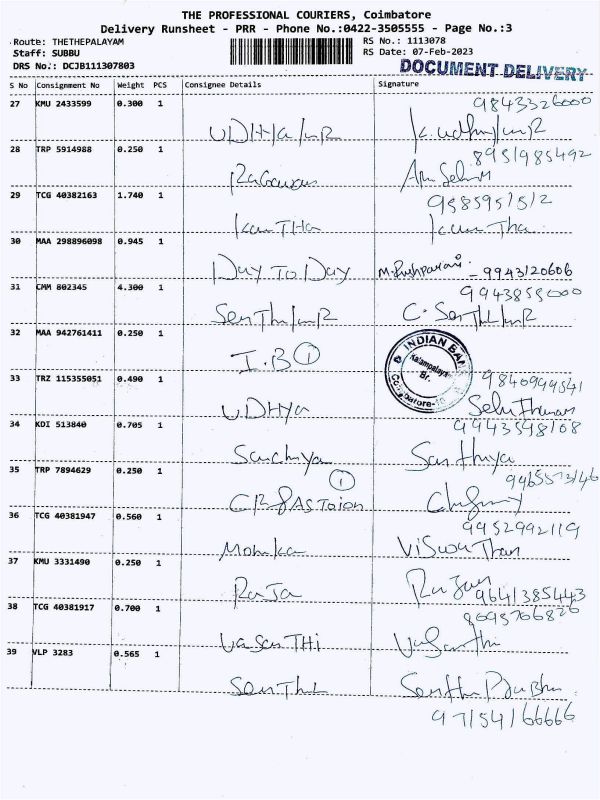 THE PROFESSIONAL COURIERS, Coimbatore
Delivery Runsheet - PRR - Phone No.:0422-3505555 - Page No.:3
Route: THETHEPALAYAM RS No.: 1113078
Staff: SUBBU RS Date: 07-Feb-2023
DRS No.: DCJB111307803 DOCUMENT DELIVERY
S No Consignment No Weight PCS Consignee Details Signature
27 KMU 2433599 0.300 1 9843326000
28 TRP 5914988 0.250 1 8951985492
29 TCG 40382163 1.740 1
KanTHa KanTha
30 MAA 298896098 0.945 1
Day To Day M. Pushpavani - 9943120606
31 CMM 802345 4.300 1 9943855000
32 MAA 942761411 0.250 1
I.B 1 INDIAN BANK Kalampalayam Br. Coimbatore
33 TRZ 115355051 0.490 1 9840999541
UDHYA
34 KDI 513840 0.705 1 9943598168
Santhiya Santhiya
35 TRP 7894629 0.250 1
1
36 TCG 40381947 0.560 1 9952992119
Monika Viswanathan
37 KMU 3331490 0.250 1
RaJa 9641385443
38 TCG 40381917 0.700 1
VaSanTHi Vasanthi
39 VLP 3283 0.565 1
Senthil Senthil Prabhu
97154166666